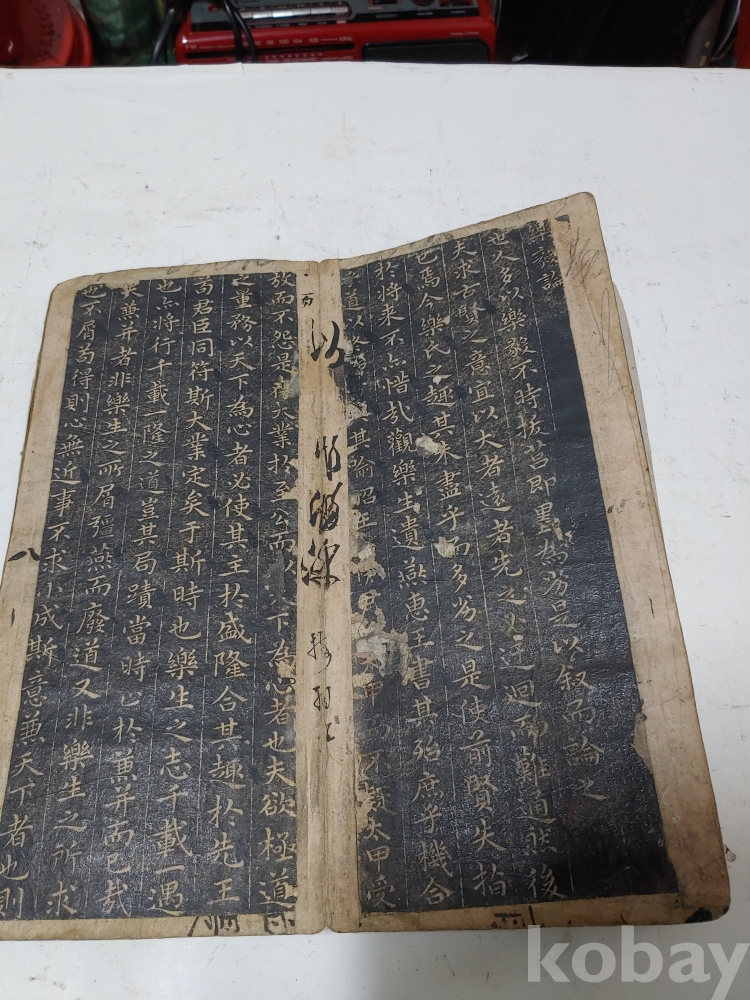 樂毅論
世人多以樂毅不時拔莒即墨為劣是以叙而論之
夫求古賢之意宜以大者遠者先之必迂迴而難通然後
已焉今樂氏之趣其未盡乎而多劣之是使前賢失指
於將来不亦惜哉觀樂生遺燕惠王書其殆庶乎機合
道以 其喻昭王 伊尹 大甲 疑大甲受
放而不怨是存大業於至公而以天下為心者也夫欲極道
之量務以天下為心者必使其主於盛隆合其趣於先王
苟君臣同符斯大業定矣于斯時也樂生之志千載一遇
也亦將行千載一隆之道豈其局蹟當時止於兼并而已哉
夫兼并者非樂生之所屑彊燕而廢道又非樂生之所求
也不屑苟得則心無近事不求小成斯意兼天下者也則
八
kobay